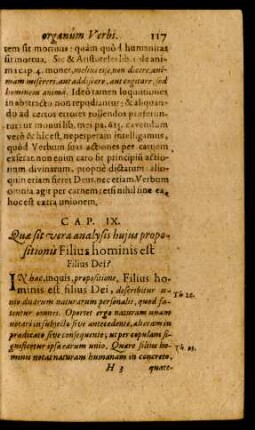 organum Verbi. 117
tem sit mortuus: quàm quòd humanitas
sit mortua. Sic & Aristoteles lib. 1 de ani-
ma cap. 4. monet, melius esse, non dicere, ani-
mam misereri, aut addiscere, aut cogitare, sed
hominem animâ. Ideò tamen loquutiones
in abstracto non repudiantur: & aliquan-
do ad certos errores tollendos proferun-
tur, ut monui lib. meo pa. 615. cavendum
verò & hîc est, ne perperam intelligamus,
quòd Verbum suas actiones per carnem
exserat. non enim caro hîc principiū actio-
num divinarum, propriè dictarum: alio-
quin etiam fieret Deus. nec etiam Verbum
omnia agit per carnem: etsi nihil sine ea,
hoc est extra unionem.
CAP. IX.
Quæ sit vera analysis hujus propo-
sitionis Filius hominis est
Filius Dei?
IN hac, inquis, propositione, Filius ho-
minis est filius Dei, describitur u-
nio duarum naturarum personalis, quod fa-
tentur omnes. Oportet ergo naturam unam
notari in subjecto sive antecedente, alteram in
prædicato sive consequente; ut per copulam si-
gnificetur ipsarum unio. Quare filius ho-
minis notat naturam humanam in concreto,
H 3 quate-